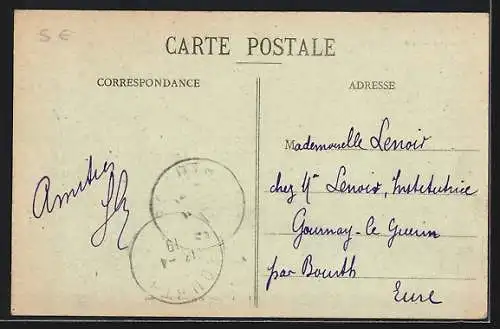 5 €
CARTE POSTALE
CORRESPONDANCE
ADRESSE
Mademoiselle Lenoir
chez Mme Lenoir, Institutrice
Gournay-le Guerin
par Bourth
Eure
Amitiés